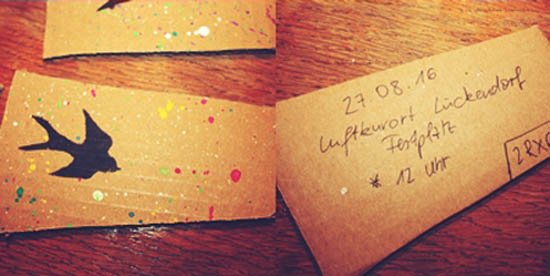 27 08.16
Luftkurort Lückendorf
Festplatz
* 12 Uhr